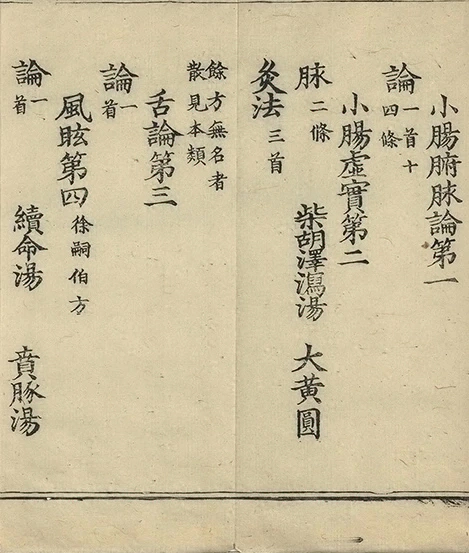 小腸腑脉論第一
論一首十四條
小腸虛實第二
脉二條 柴胡澤瀉湯 大黃圓
灸法三首
餘方無名者
散見本類
舌論第三
論一首
風眩第四徐嗣伯方
論一首 續命湯 賁豚湯